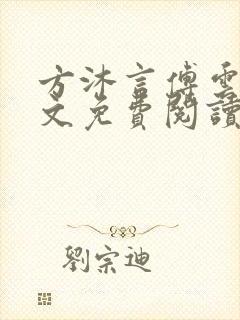 方沐言傅雲
文免費閱讀
劉宗迪